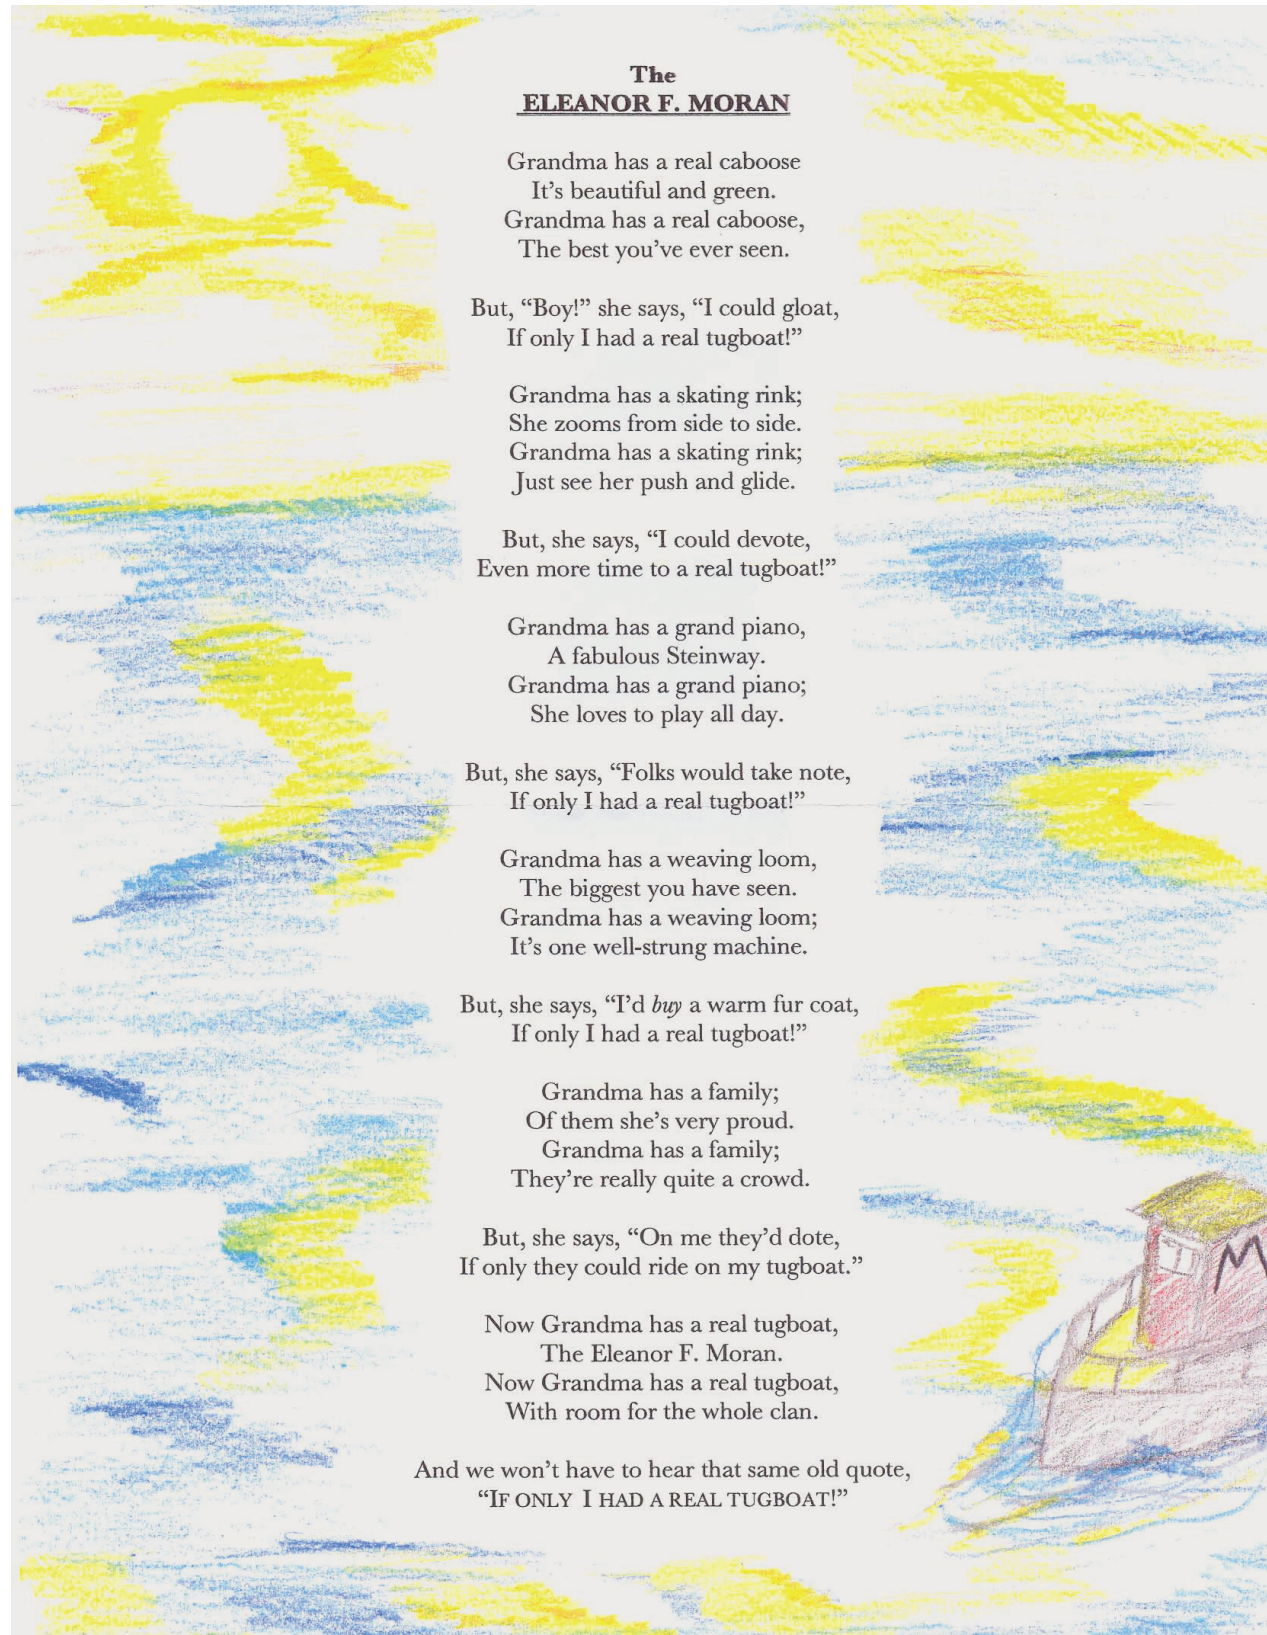 The
ELEANOR F. MORAN
Grandma has a real caboose
It's beautiful and green.
Grandma has a real caboose,
The best you've ever seen.
But, “Boy!” she says, “I could gloat,
If only I had a real tugboat!”
Grandma has a skating rink;
She zooms from side to side.
Grandma has a skating rink;
Just see her push and glide.
But, she says, “I could devote,
Even more time to a real tugboat!”
Grandma has a grand piano,
A fabulous Steinway.
Grandma has a grand piano;
She loves to play all day.
But, she says, “Folks would take note,
If only I had a real tugboat!”
Grandma has a weaving loom,
The biggest you have seen.
Grandma has a weaving loom;
It's one well-strung machine.
But, she says, “I'd buy a warm fur coat,
If only I had a real tugboat!”
Grandma has a family;
Of them she's very proud.
Grandma has a family;
They're really quite a crowd.
But, she says, “On me they'd dote,
If only they could ride on my tugboat.”
Now Grandma has a real tugboat,
The Eleanor F. Moran.
Now Grandma has a real tugboat,
With room for the whole clan.
And we won't have to hear that same old quote,
“IF ONLY I HAD A REAL TUGBOAT!”
M